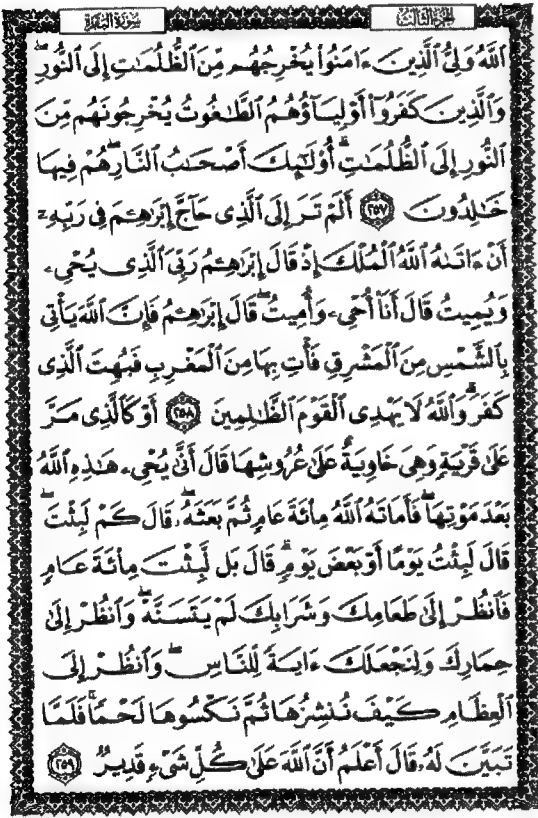 الجزء الثالث
سورة البقرة
ٱللَّهُ وَلِىُّ ٱلَّذِينَ ءَامَنُوا۟ يُخْرِجُهُم مِّنَ ٱلظُّلُمَٰتِ إِلَى ٱلنُّورِۖ
وَٱلَّذِينَ كَفَرُوٓا۟ أَوْلِيَآؤُهُمُ ٱلطَّٰغُوتُ يُخْرِجُونَهُم مِّنَ
ٱلنُّورِ إِلَى ٱلظُّلُمَٰتِۗ أُو۟لَٰٓئِكَ أَصْحَٰبُ ٱلنَّارِۖ هُمْ فِيهَا
خَٰلِدُونَ ٢٥٧ أَلَمْ تَرَ إِلَى ٱلَّذِى حَآجَّ إِبْرَٰهِـۧمَ فِى رَبِّهِۦٓ
أَنْ ءَاتَىٰهُ ٱللَّهُ ٱلْمُلْكَ إِذْ قَالَ إِبْرَٰهِـۧمُ رَبِّىَ ٱلَّذِى يُحْىِۦ
وَيُمِيتُ قَالَ أَنَا۠ أُحْىِۦ وَأُمِيتُۖ قَالَ إِبْرَٰهِـۧمُ فَإِنَّ ٱللَّهَ يَأْتِى
بِٱلشَّمْسِ مِنَ ٱلْمَشْرِقِ فَأْتِ بِهَا مِنَ ٱلْمَغْرِبِ فَبُهِتَ ٱلَّذِى
كَفَرَۗ وَٱللَّهُ لَا يَهْدِى ٱلْقَوْمَ ٱلظَّٰلِمِينَ ٢٥٨ أَوْ كَٱلَّذِى مَرَّ
عَلَىٰ قَرْيَةٍ وَهِىَ خَاوِيَةٌ عَلَىٰ عُرُوشِهَا قَالَ أَنَّىٰ يُحْىِۦ هَٰذِهِ ٱللَّهُ
بَعْدَ مَوْتِهَاۖ فَأَمَاتَهُ ٱللَّهُ مِا۟ئَةَ عَامٍ ثُمَّ بَعَثَهُۥۖ قَالَ كَمْ لَبِثْتَۖ
قَالَ لَبِثْتُ يَوْمًا أَوْ بَعْضَ يَوْمٍۖ قَالَ بَل لَّبِثْتَ مِا۟ئَةَ عَامٍ
فَٱنظُرْ إِلَىٰ طَعَامِكَ وَشَرَابِكَ لَمْ يَتَسَنَّهْۖ وَٱنظُرْ إِلَىٰ
حِمَارِكَ وَلِنَجْعَلَكَ ءَايَةً لِّلنَّاسِۖ وَٱنظُرْ إِلَى
ٱلْعِظَامِ كَيْفَ نُنشِزُهَا ثُمَّ نَكْسُوهَا لَحْمًاۚ فَلَمَّا
تَبَيَّنَ لَهُۥ قَالَ أَعْلَمُ أَنَّ ٱللَّهَ عَلَىٰ كُلِّ شَىْءٍ قَدِيرٌ ٢٥٩